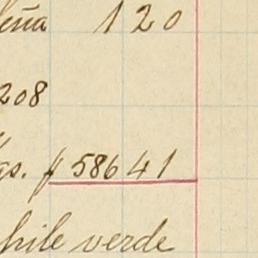 leña 120
208
gs. $ 58641
hile verde